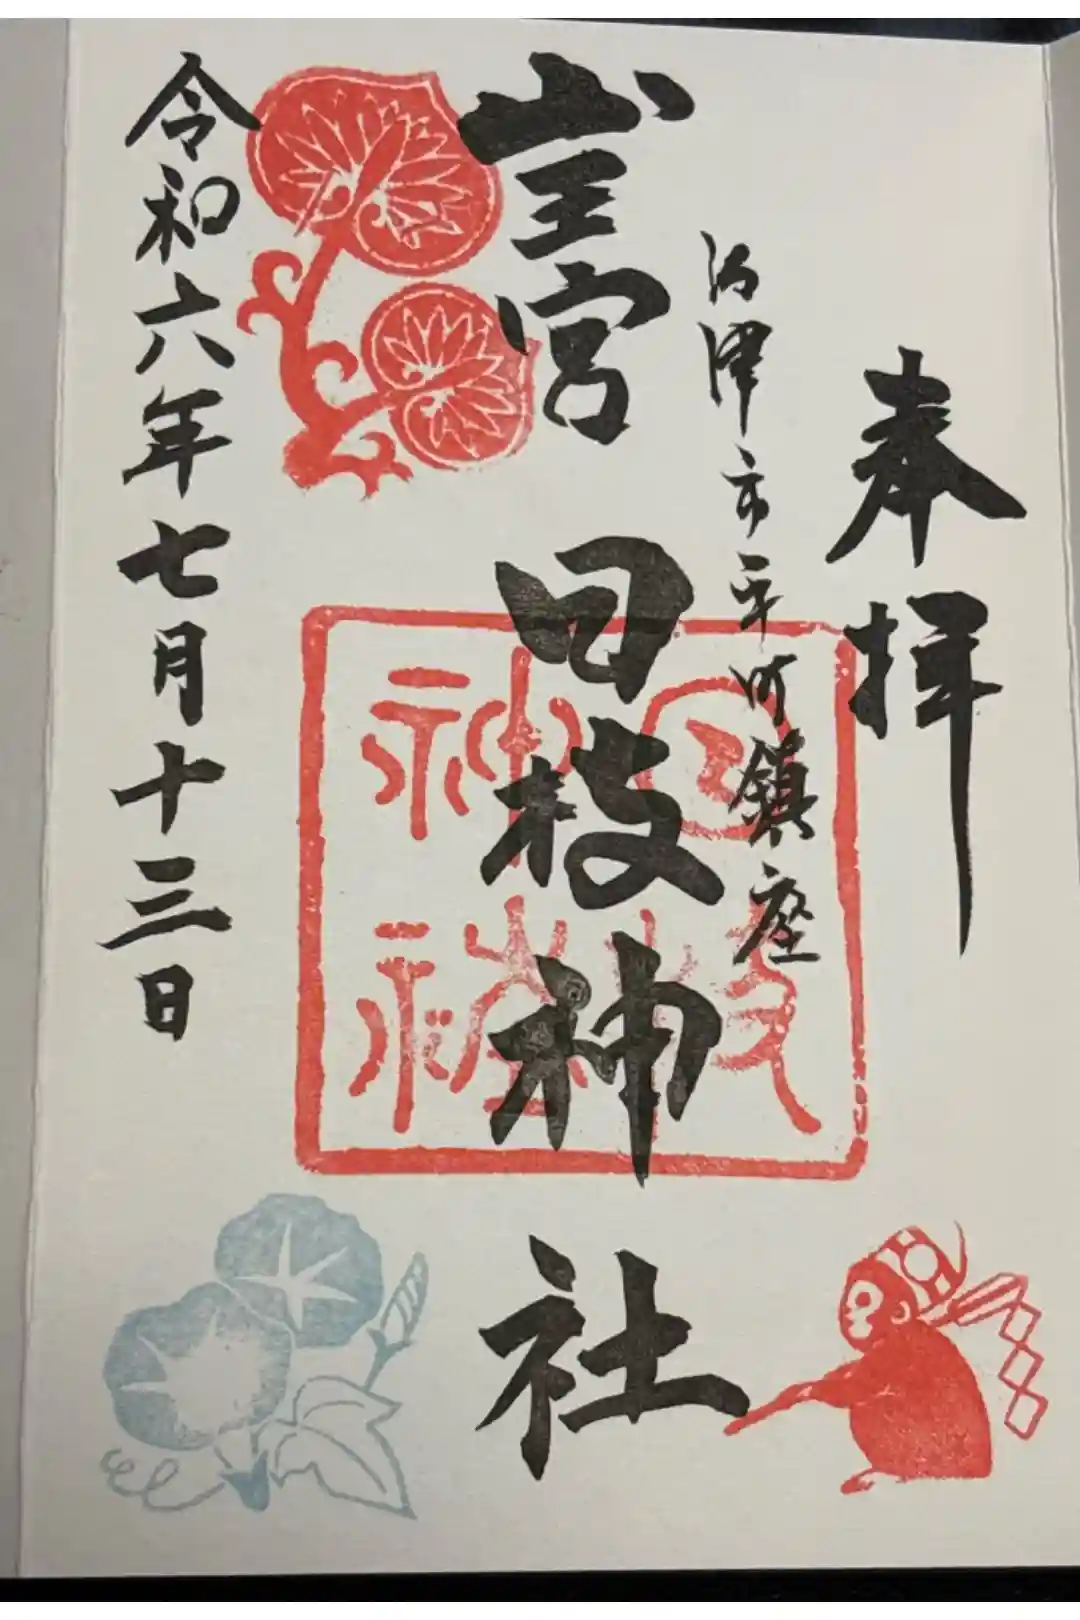 奉拝
沼津市平町鎮座
山王宮 日枝神社
日枝
神社
令和六年七月十三日